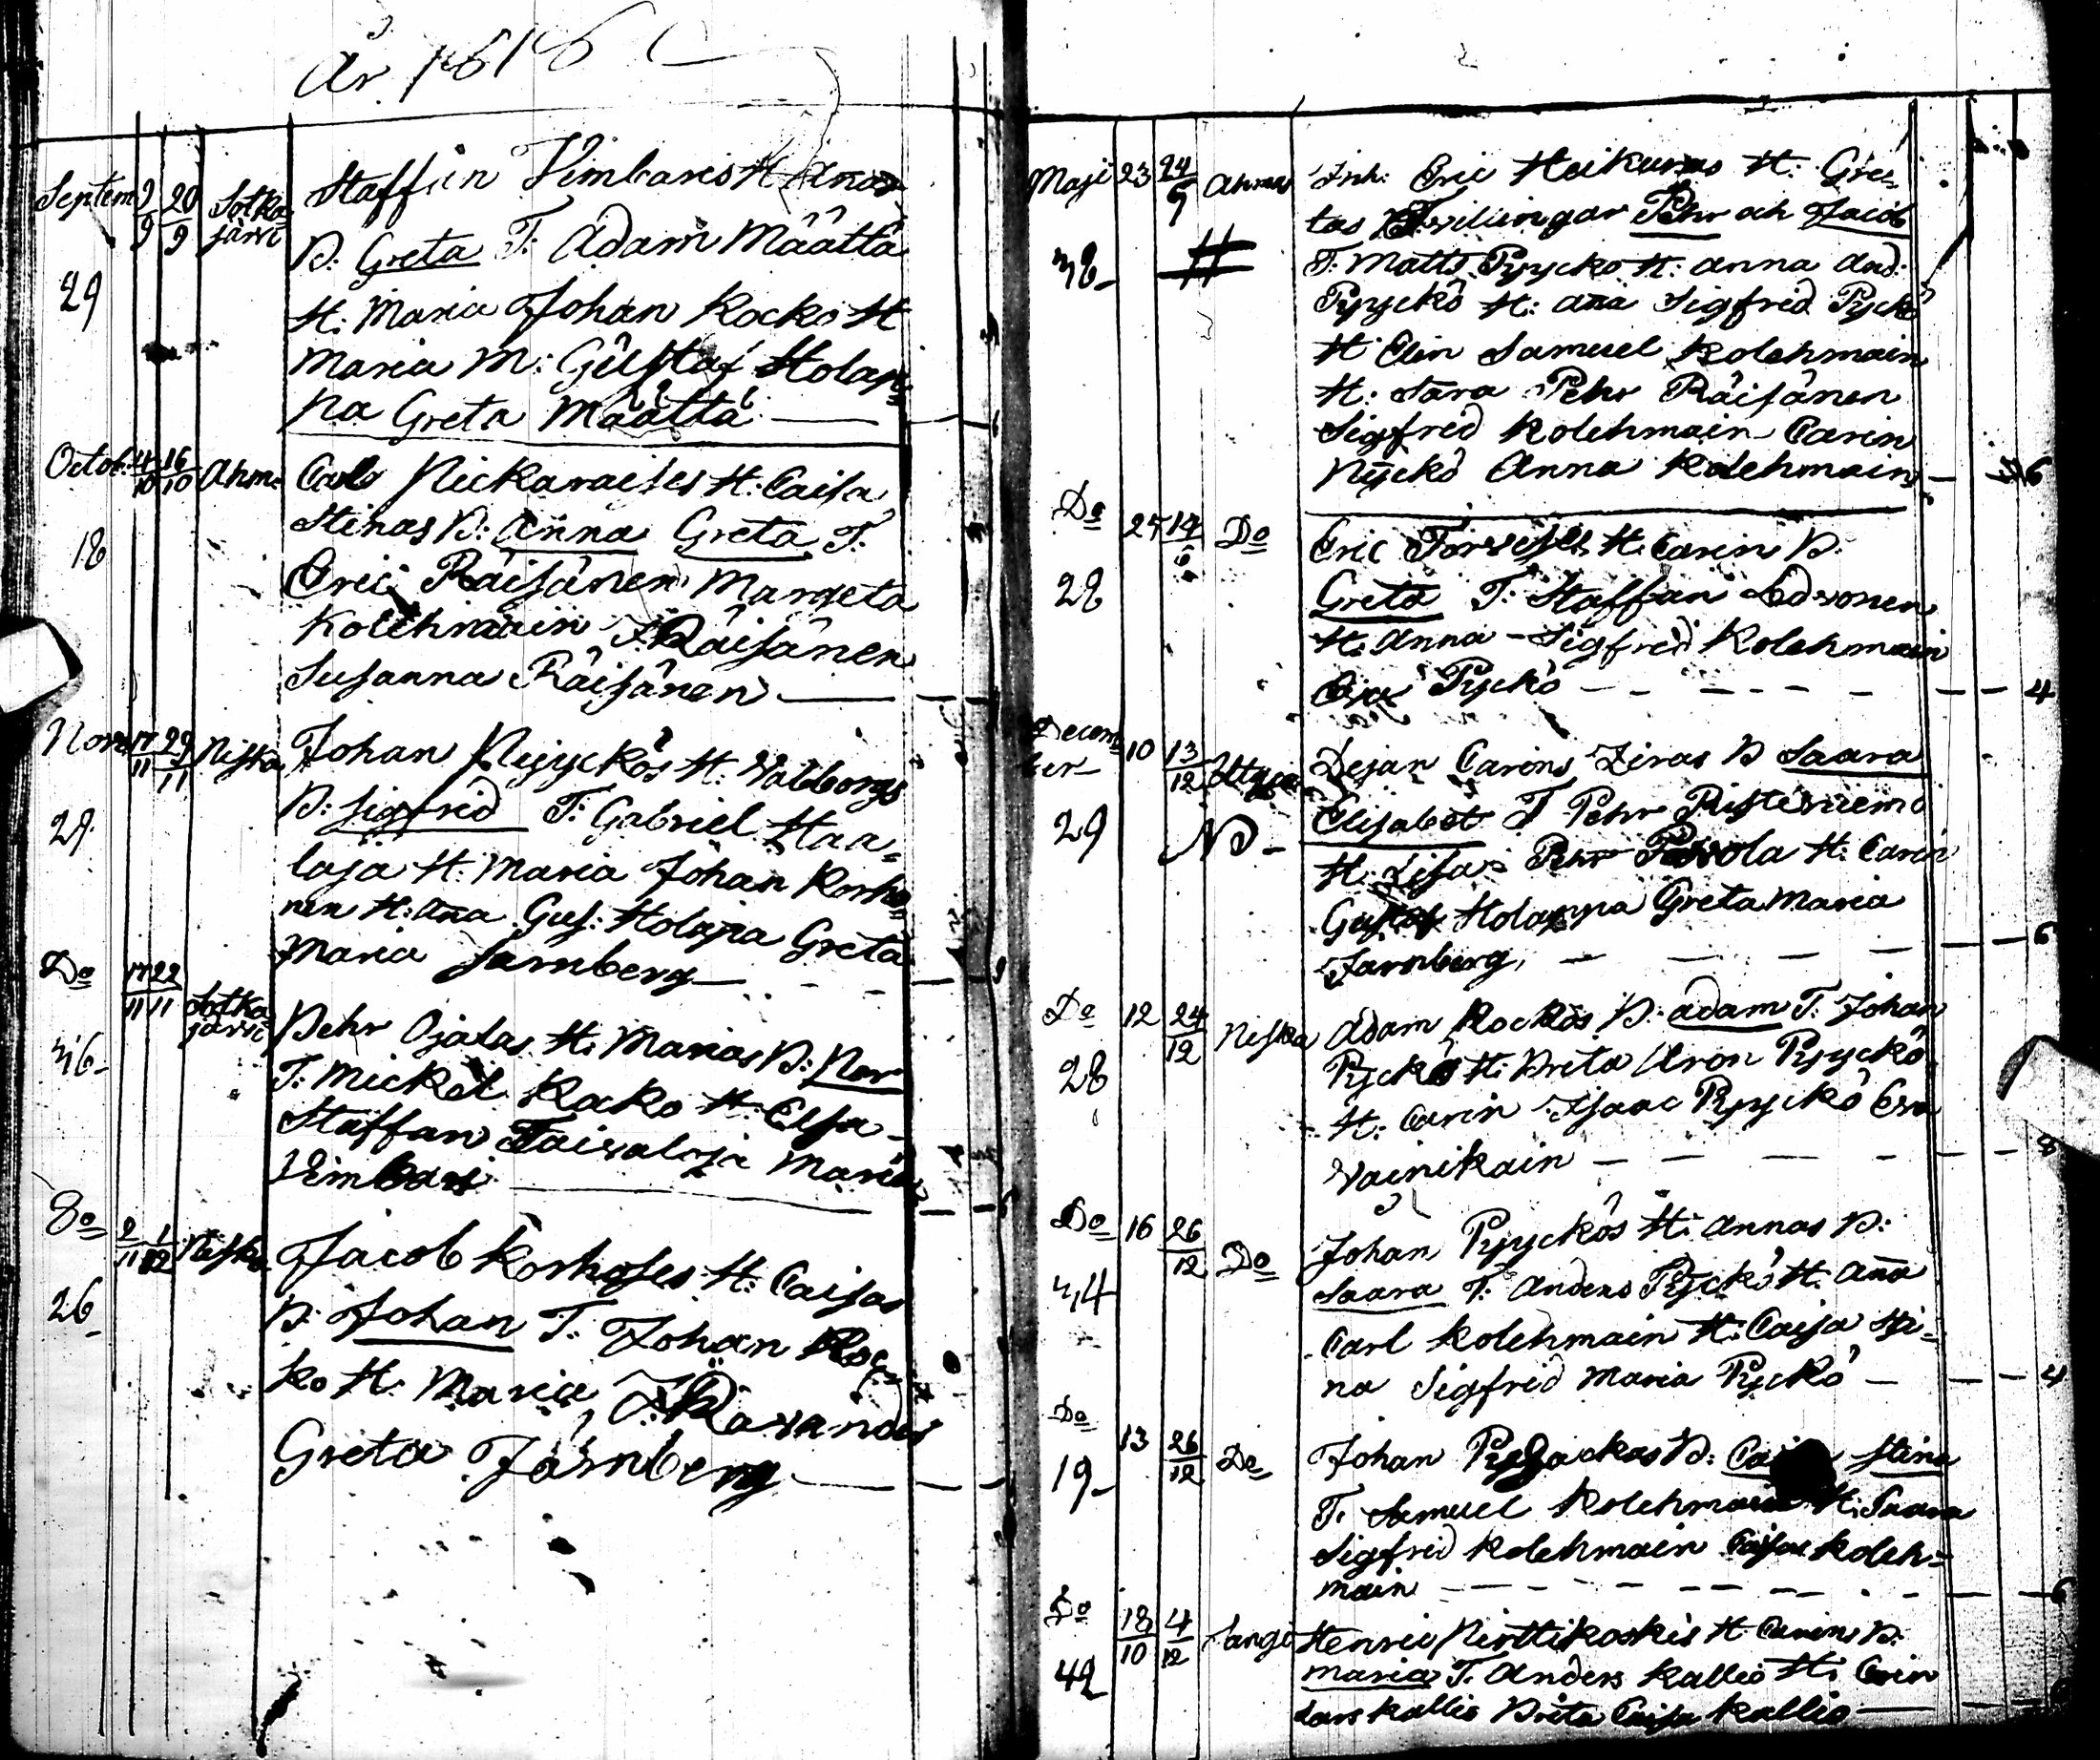 År 1816
Septem 9/9 20/9 Sotka Staffan Vimbaris H. Anas
järvi B: Greta T: Adam Määttä
29 H: Maria Johan Kocko H
Maria M: Gustaf Holap=
pa Greta Määttä
Octob: 16/10 Ahm. Carls H: Caisa
18 Stinas B: Anna Greta T:
Eric Räisänen Margeta
Kolehmain Räisänen
Susanna Räisänen
Nov 17/11 29/11 Niska Johan Pyyckös H: Valborgs
29. B: Sigfrid T: Gabriel Haa=
laja H: Maria Johan Korho=
nen H: Ana Gus: Holapa Greta
Maria Jarnberg
Do 17/11 22/11 Sotka
järvi Pehr Ojalas H: Marias B: Per
36- T: Mickel Kocko H: Elsa
Staffan Taivaloja Maria
Vimbari
Do 2/11 1/12 Niska Jacob Korhoses H: Caisas
26- B: Johan T: Johan Koc
ko H: Maria Ravander
Greta Järnberg
Maji 23 24/5 Ahmas Inh: Eric Heikuras H: Gre=
tas Tvilingar Pehr och Jacob
38- T: Matts Pyycko H: Anna And:
Pyyckö H: Ana Sigfrid Pyckö
H Elin Samuel Kolehmain
H: Sara Pehr Räisänen
Sigfrid Kolehmain Carin
Pyckö Anna Kolehmain 6
Do 27 14/6 Do Eric H: Carin B:
28 Greta T: Staffan
H: Anna - Sigfred Kolehmain
Pyckö 4
Decem=
ber 10 13/12 Dejan Carins B Saara
29 Elisabet T Pehr Ristiniemi
H: Lisa Pehr H: Carin
Gustaf Holappa Greta Maria
Jarnberg, 6
Do 12 24/12 Niska Adam Kockos B: Adam T: Johan
28 Pyckö H: Brita Aron Pyyckö
H: Carin Isaac Pyyckö Eva
Vainikain 8
Do 16 26/12 Do Johan Pyyckös H: Annas B:
34 Saara T: Anders Pyckö H: Ana
Carl Kolehmain H: Caisa Sti=
na Sigfrid Maria Pyckö 4
Do 13 26/12 Do Johan B: Stina
19- T: Samuel Kolehmain H: Saara
Sigfrid Kolehmain Caisa Koleh=
main 6
Do 18/10 4/12 Henric Pirttikoskis H Carins B:
42 Maria T: Anders Kallio H:
Lars Kallio Brita Caisa Kallio